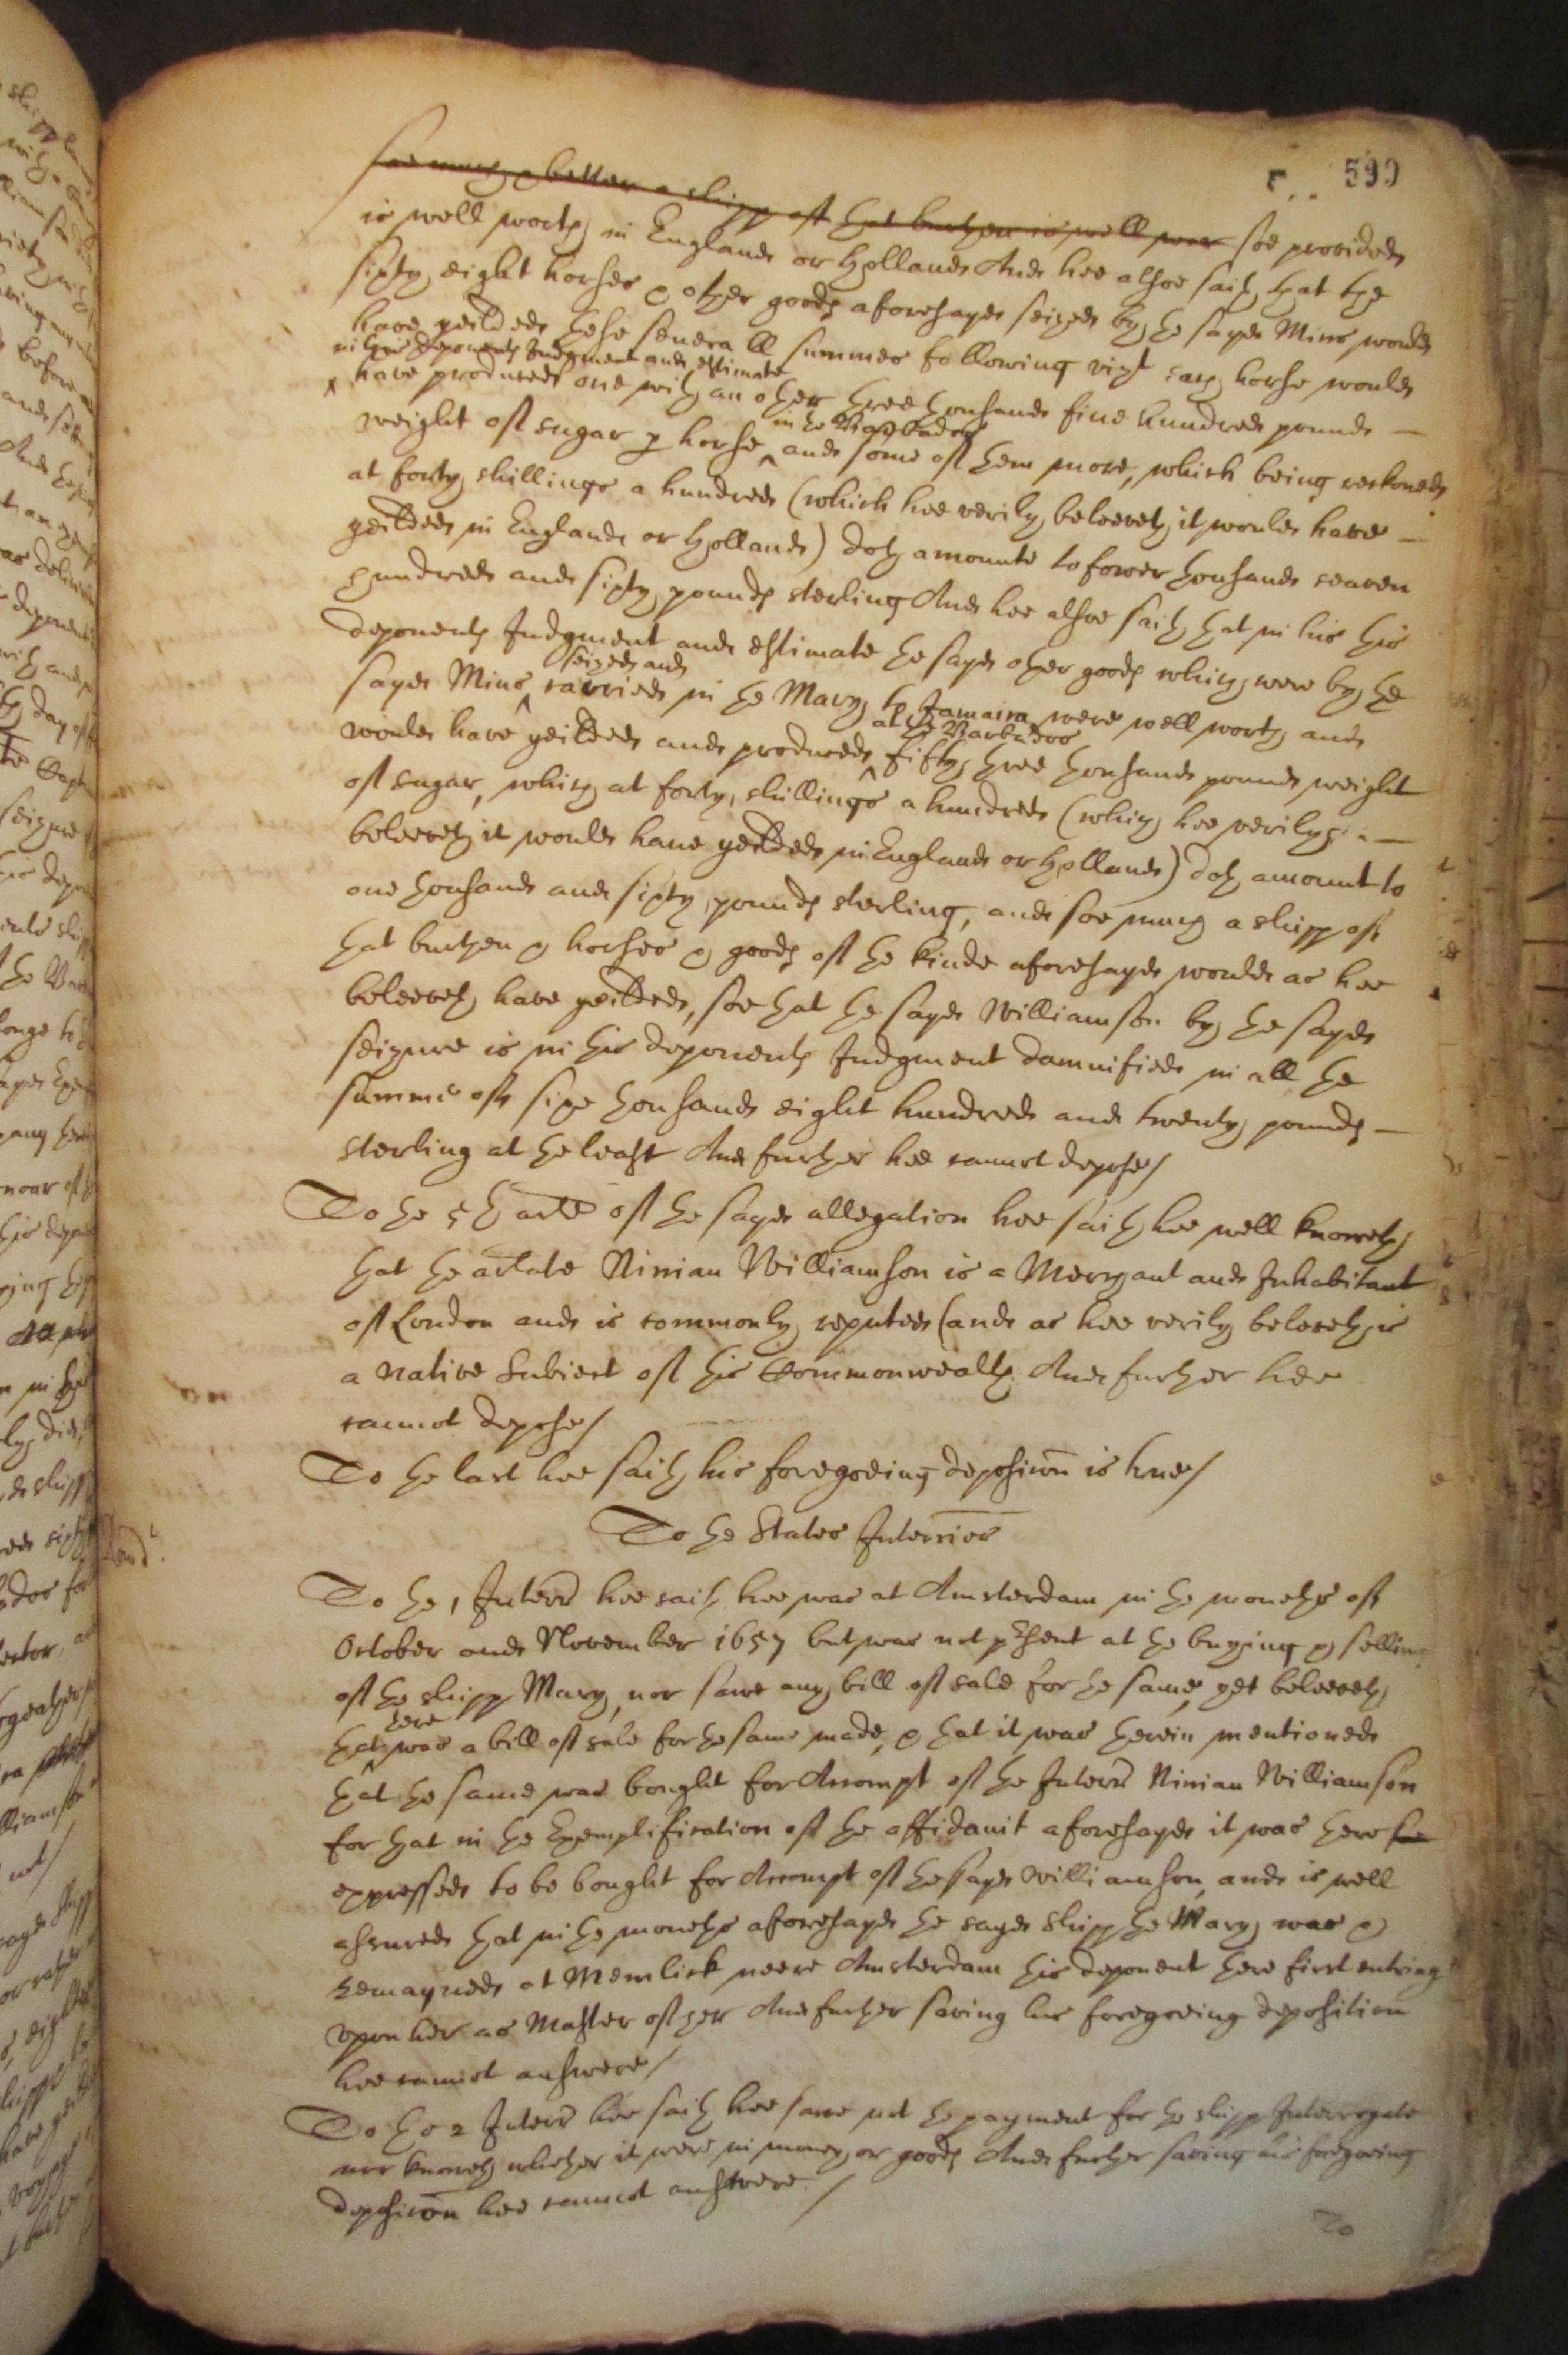 599
soe much a better a shipp of that burthen is well wor soe provided
is well worth in England or Holland And hee alsoe saith that the
sixty eight horses & other goods aforesayd seized by the sayd Mins would
have yeilded these severall summes following vizt each horse would
in this deponents Judgment and estimate
have produced one with an other three thousand five hundred pounds
in the Barbados
weight of sugar p horse and some of them more, which being reckoned
at forty shillings a hundred (which hee verily beleeveth it would have
yeilded in England or Holland) doth amounte to fower thousand seaven
hundred and sixty pounds sterling And hee alsoe saith that in his this
deponents Judgment and estimate the sayd other goods which were by the
seized and
sayd Mins carried in the Mary to Jamaica were well worth and
at the Barbados
would have yeilded and produced fifty three thousand pounds weight
of sugar, which at forty shillings a hundred (which hee verily
beleeveth it would have yeilded in England or Holland) doth amount to
one thousand and sixty pounds sterling, and soe much a shipp of
that burthen & horses & goods of the kinde aforesayd would as hee
beleeveth have yeilded, soe that the sayd Williamson by the sayd
seizure is in this deponents Judgment damnified in all the
summe of sixe thousand eight hundred and twenty pounds
sterling at the least And further hee cannot depose/
To the 5th arte of the sayd allegation hee saith hee well knoweth
that the arlate Ninian Williamson is a Merchant and Inhabitant
of London and is commonly reputed (and as hee verily beleeveth is
a native Subiect of this Commonwealth And further hee
cannot depose/
To the last hee saith his foregoeing deposicon is true/
To the States Interries
To the 1 Interr hee saith hee was at Amsterdam in the moneths of
October and November 1657 but was not present at the buying & selling
of the shipp Mary, nor sawe any bill of sale for the same, yet beleeveth
there
that was a bill of sale for the same made, & that it was therein mentioned
that the same was bought for Accompt of the Interr Ninian Williamson
for that in the Exemplification of the affidavit aforesayd it was there soe
expressed to be bought for Accompt of the sayd Williamson, and is well
assured that in the moneths aforesayd the sayd shipp the Mary was &
remayned at Memlick neere Amsterdam this deponent there first entring
upon her as Master of her And further saving his foregoeing deposition
hee cannot answere/
To the 2 Interr hee saith hee sawe not the payment for the shipp Interrogate
nor knoweth whether it were in money or goods And further saving his foregoeing
deposicon hee cannot answere./
To